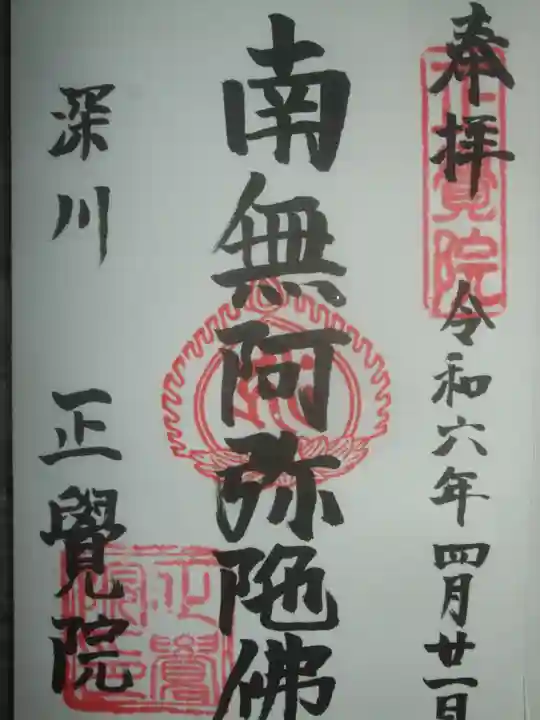 奉拝 令和六年四月廿一日
南無阿弥陀佛
深川 正覺院
正覚院